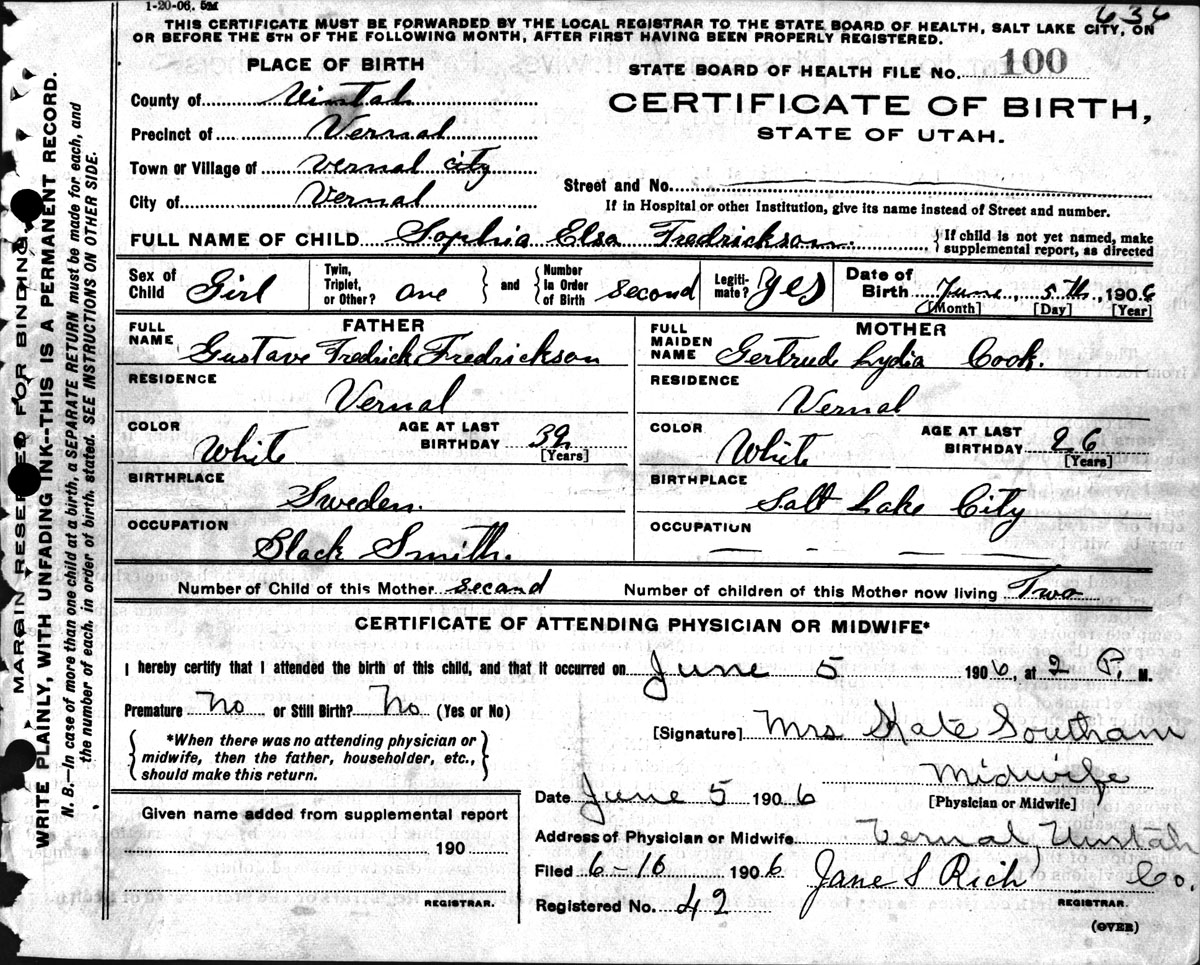 1-20-06. 5M
636
THIS CERTIFICATE MUST BE FORWARDED BY THE LOCAL REGISTRAR TO THE STATE BOARD OF HEALTH, SALT LAKE CITY, ON
OR BEFORE THE 5TH OF THE FOLLOWING MONTH, AFTER FIRST HAVING BEEN PROPERLY REGISTERED.
PLACE OF BIRTH
County of Uintah
Precinct of Vernal
Town or Village of Vernal city
City of Vernal
STATE BOARD OF HEALTH FILE No. 100
CERTIFICATE OF BIRTH,
STATE OF UTAH.
Street and No.
If in Hospital or other Institution, give its name instead of Street and number.
FULL NAME OF CHILD Sophia Elsa Fredrickson. {If child is not yet named, make
supplemental report, as directed
Sex of Child Girl
Twin, Triplet, or Other? one } and { Number In Order of Birth second
Legiti-mate? Yes
Date of Birth June, 5th, 1906
[Month] [Day] [Year]
FATHER
FULL NAME Gustave Fredrick Fredrickson
RESIDENCE
Vernal
COLOR White AGE AT LAST BIRTHDAY 32
[Years]
BIRTHPLACE
Sweden.
OCCUPATION
Black Smith.
MOTHER
FULL MAIDEN NAME Gertrude Lydia Cook.
RESIDENCE
Vernal
COLOR White AGE AT LAST BIRTHDAY 26
[Years]
BIRTHPLACE
Salt Lake City
OCCUPATION
Number of Child of this Mother second Number of children of this Mother now living Two
CERTIFICATE OF ATTENDING PHYSICIAN OR MIDWIFE*
I hereby certify that I attended the birth of this child, and that it occurred on June 5 1906, at 2 P. M.
Premature No or Still Birth? No (Yes or No)
{*When there was no attending physician or
midwife, then the father, householder, etc.,
should make this return.}
[Signature] Mrs Kate Southam
Midwife
[Physician or Midwife]
Date June 5 1906
Address of Physician or Midwife. Vernal, Uintah
Co.
Filed 6-16 1906 Jane S Rich
REGISTRAR.
Registered No. 42
(OVER)
Given name added from supplemental report
190
REGISTRAR.
MARGIN RESERVED FOR BINDING
WRITE PLAINLY, WITH UNFADING INK--THIS IS A PERMANENT RECORD.
N. B.—In case of more than one child at a birth, a SEPARATE RETURN must be made for each, and
the number of each, in order of birth, stated. SEE INSTRUCTIONS ON OTHER SIDE.